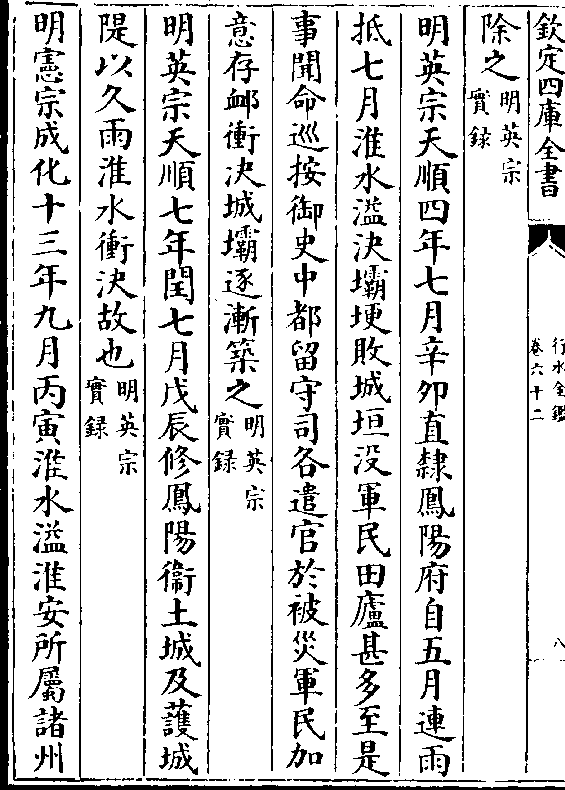 欽定四庫全書
行水金鑑
卷六十二
八
除之明英宗
實録
明英宗天順四年七月辛夘直隸鳳陽府自五月連雨
抵七月淮水溢決壩埂敗城垣没軍民田廬甚多至是
事聞命巡按御史中都留守司各遣官於被災軍民加
意存䘏衝決城壩逐漸築之明英宗
實録
明英宗天順七年閏七月戊辰修鳳陽衞土城及䕶城
隄以久雨淮水衝決故也明英宗
實録
明憲宗成化十三年九月丙寅淮水溢淮安所屬諸州